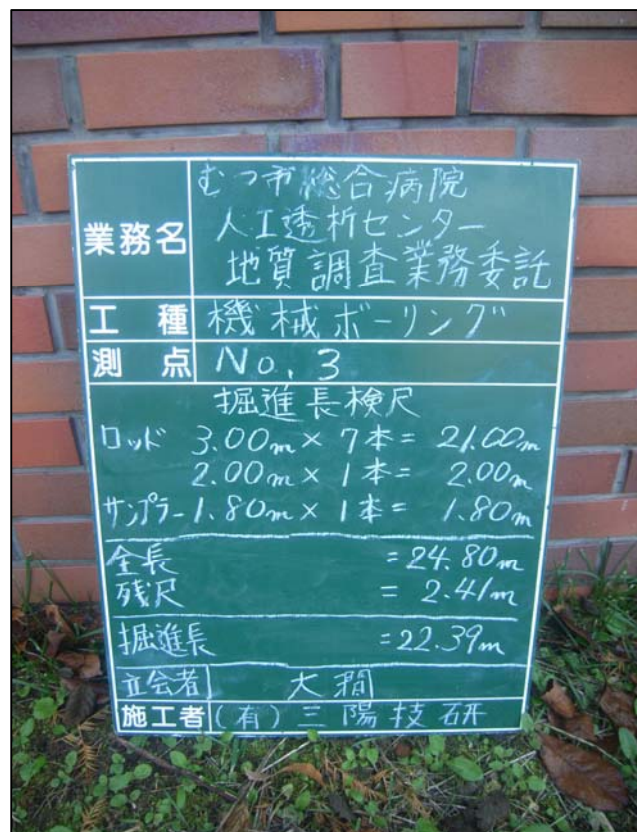 業務名 むつ市総合病院
人工透析センター
地質調査業務委託
工種 機械ボーリング
測点 No.3
掘進長検尺
ロッド 3.00m × 7本 = 21.00m
2.00m × 1本 = 2.00m
サンプラー 1.80m × 1本 = 1.80m
全長 = 24.80m
残尺 = 2.41m
掘進長 = 22.39m
立会者 大澗
施工者 (有)三陽技研